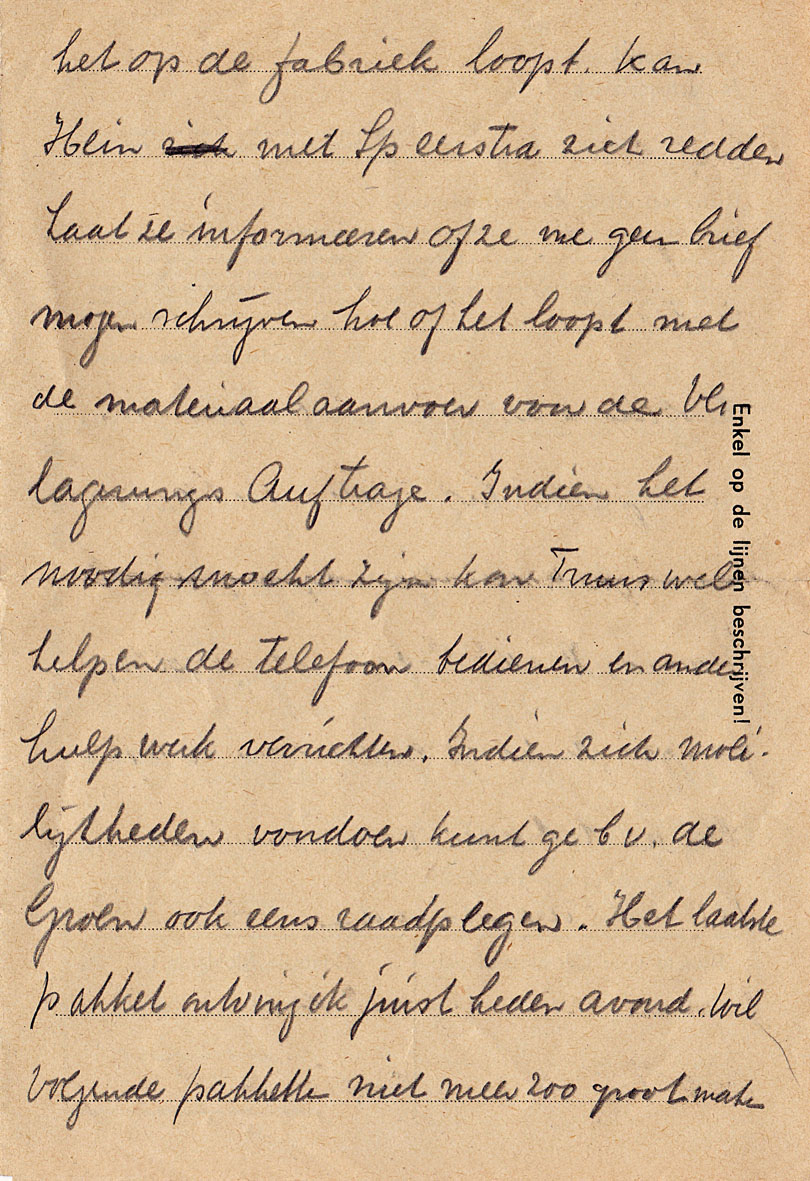 het op de fabriek loopt. kan
Hein zich met Speerstra zich redden
Laat ze informeeren of ze me geen brief
mogen schrijven hoe of het loopt met
de materiaalaanvoer van de Ver
lagerungs Auftrage. Indien het
noodig mocht zijn kan Truus wel
helpen de telefoon bedienen en ander
hulp werk verrichten. Indien zich moei-
lijkheden voordoen kunt ge b v. de
Groen ook eens raadplegen. Het laatste
pakket ontving ik juist heden avond. Wil
volgende pakketten niet meer zoo groot maken
Enkel op de lijnen beschrijven!